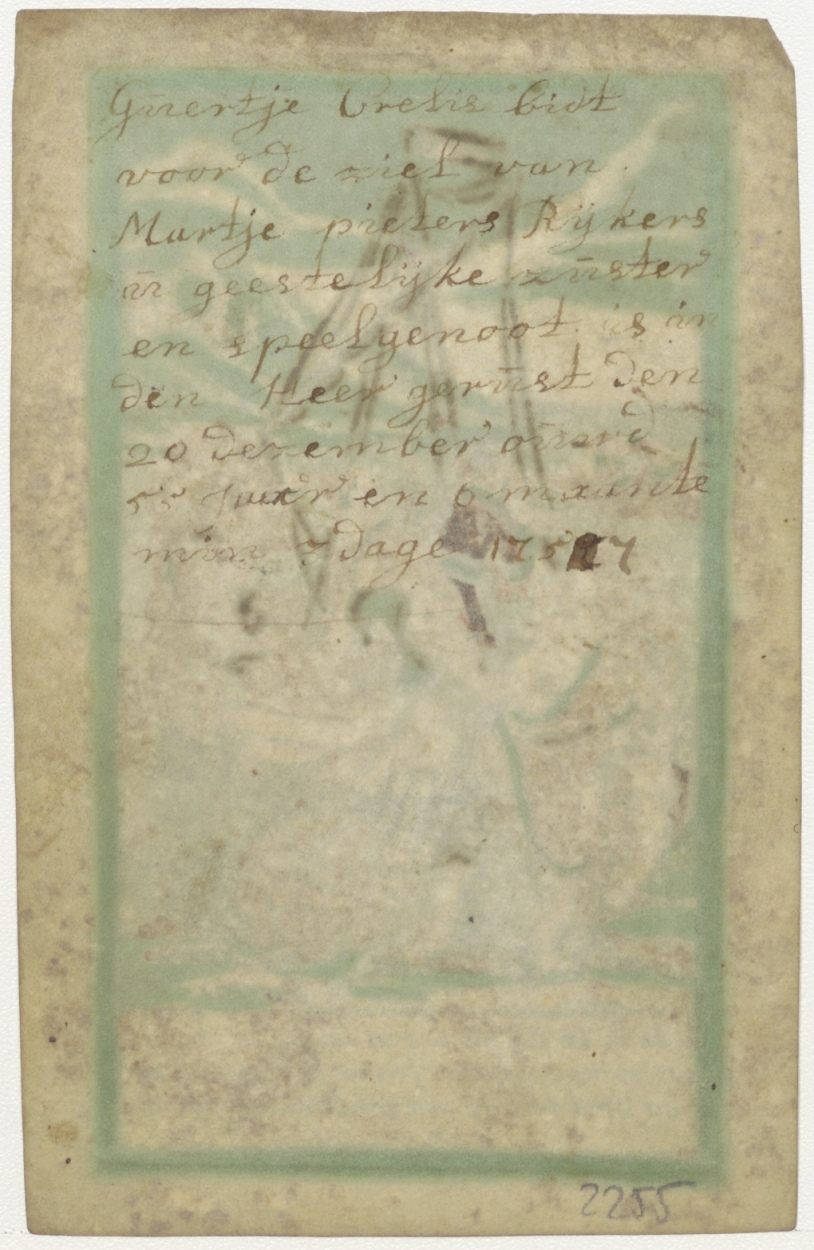 Gūertje Crelis bidt
voor de ziel van
Martje pieters Rÿkers
ū geestelÿke zūster
en speelgenoot is in
den Heer gerūst den
20 dezember oūwrd
55 Jaer en 6 maante
min 7 dage
2255